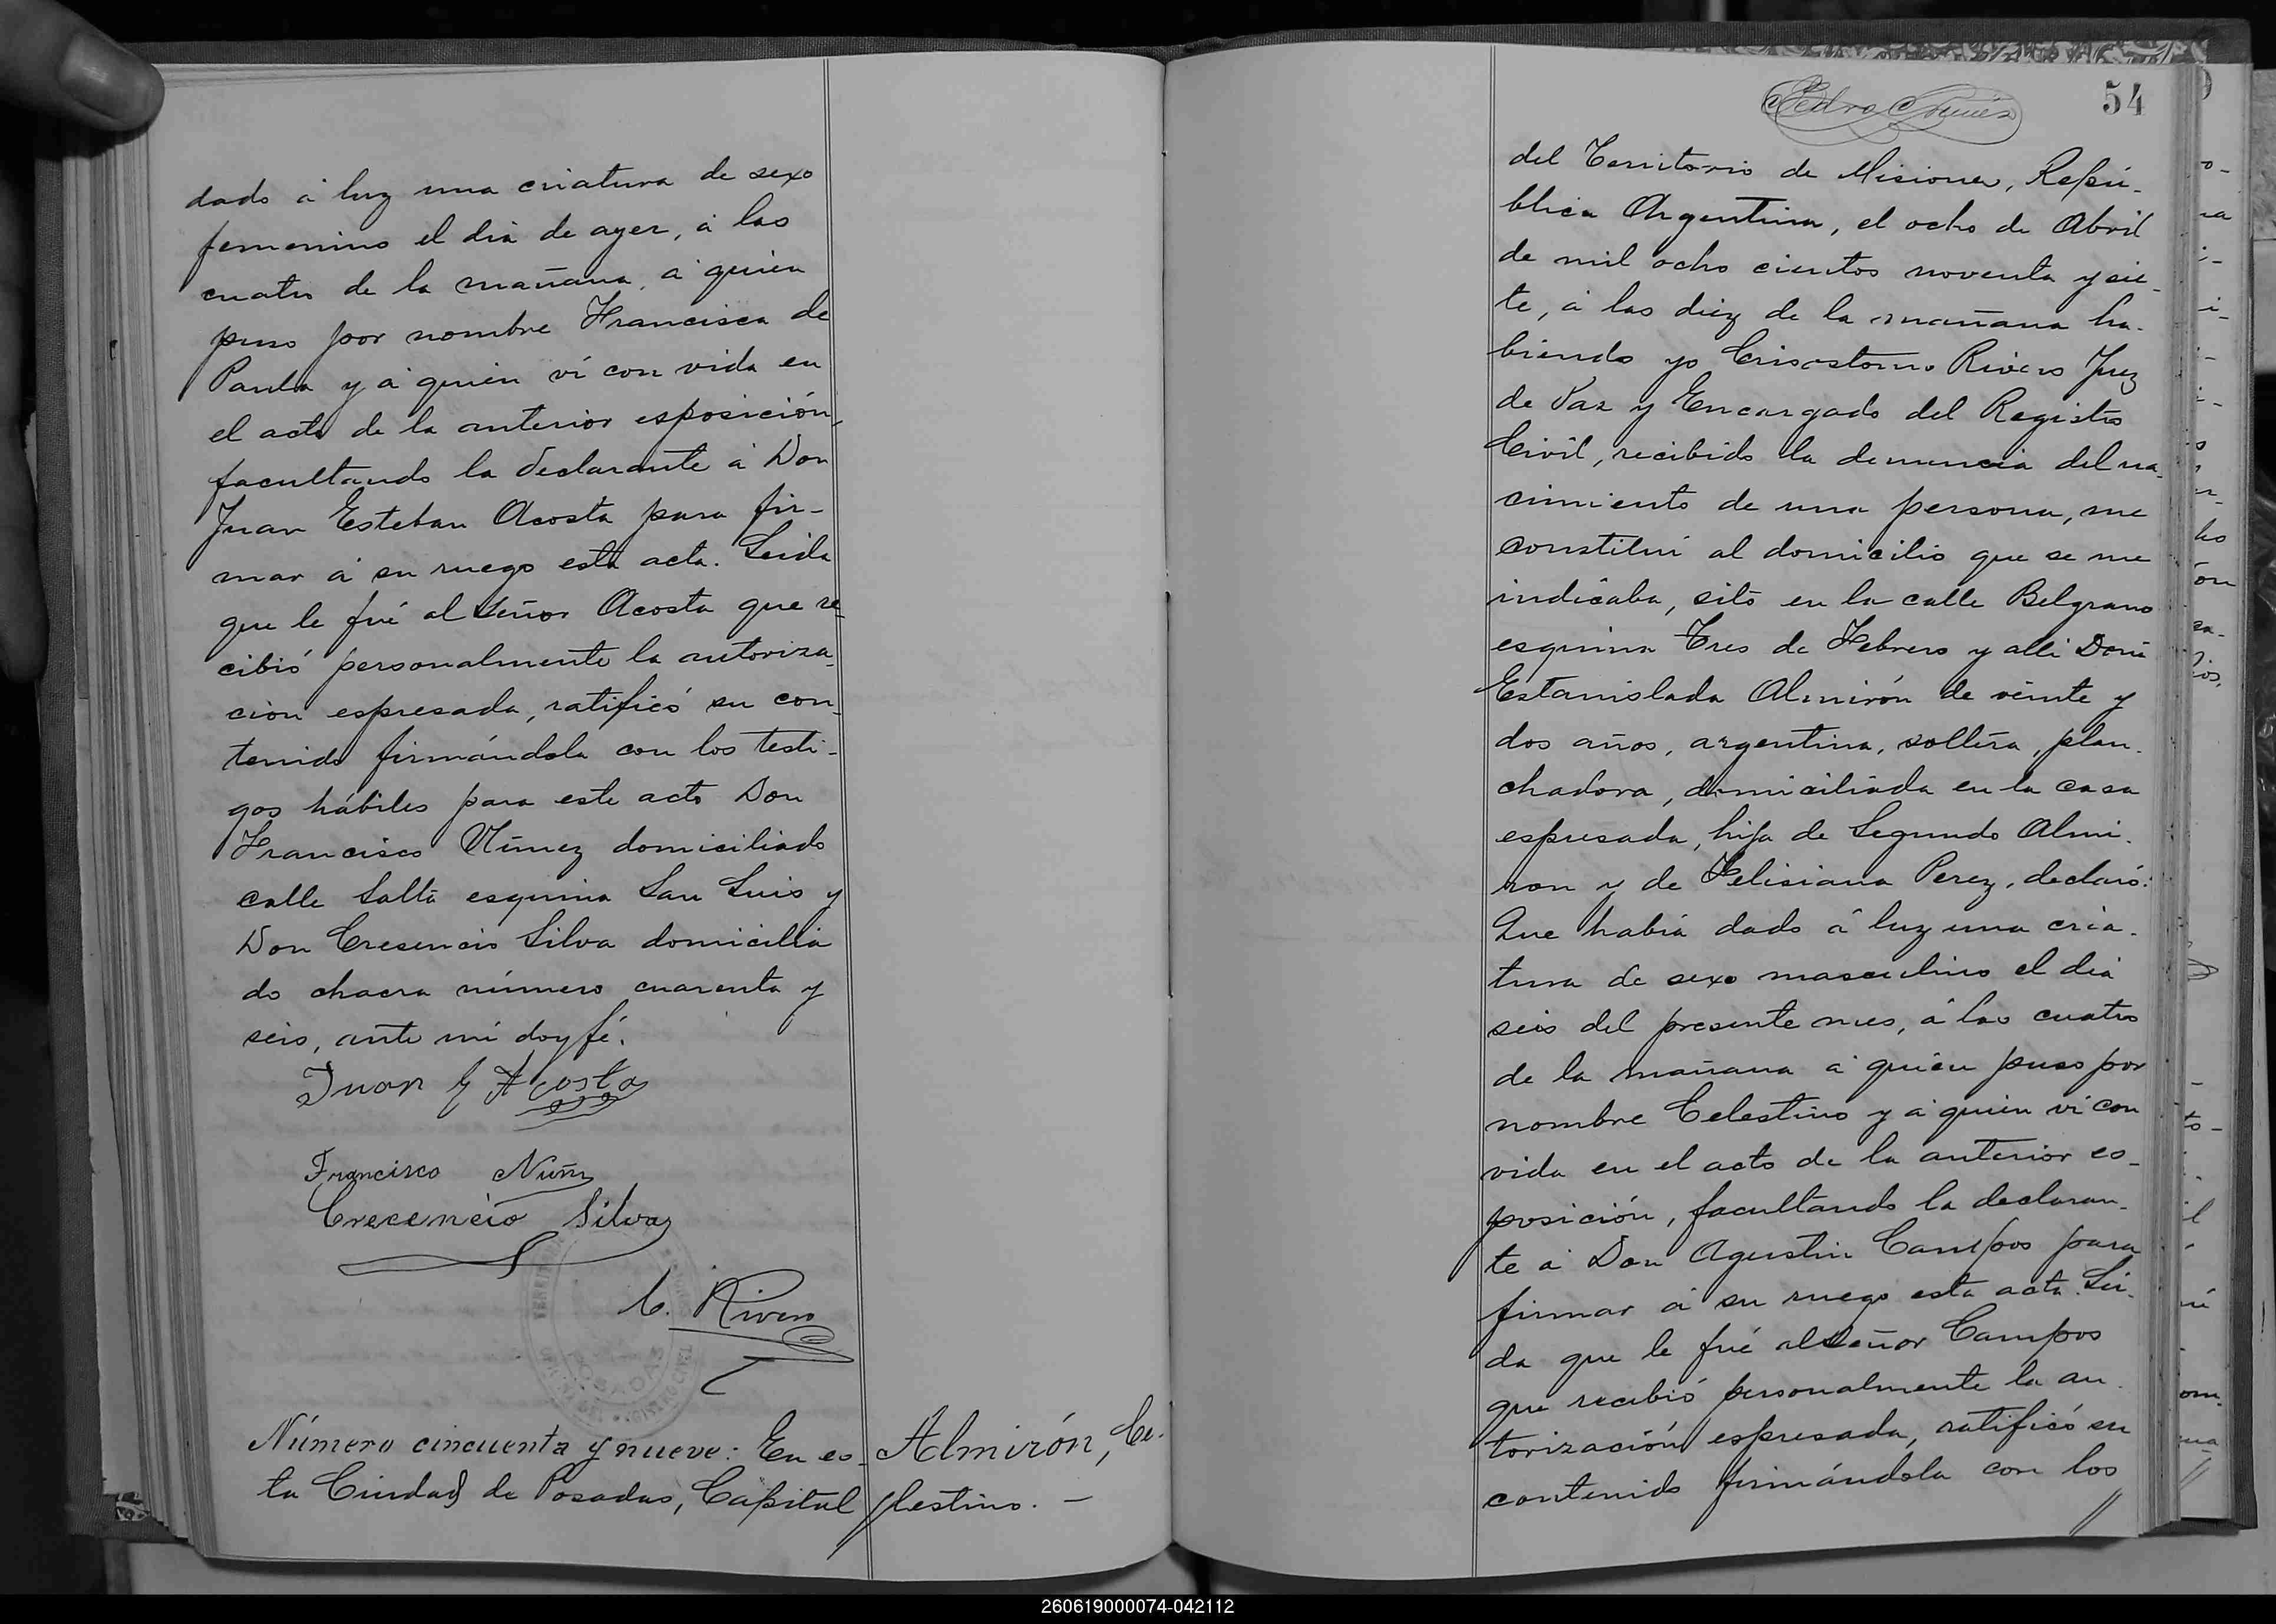 dado á luz una criatura de sexo
femenino el dia de ayer, á las
cuatro de la mañana, á quien
puso por nombre Francisca de
Paula y á quien ví con vida en
el acto de la anterior esposición,
facultando la declarante á Don
Juan Esteban Acosta para fir-
mar á su ruego esta acta. Leida
que le fué al Señor Acosta que re-
cibió personalmente la autoriza-
cion espresada, ratificó su con-
tenido firmándola con los testi-
gos hábiles para este acto Don
Francisco Núnez domiciliado
calle Salta esquina San Luis y
Don Cresencio Silva domicilia
do chacra número cuarenta y
seis, ante mí doy fé.
Juan E Acosta
Francisco Nuñz
Crecencio Silva
C. Rivero
POSADAS
Número cincuenta y nueve: En es-
ta Ciudad de Posadas, Capital
Almirón, Ce-
lestino. —
Pedro
54
del Territorio de Misiones, Repú-
blica Argentina, el ocho de Abril
de mil ocho cientos noventa y sie-
te, á las diez de la mañana ha-
biendo yo Crisostomo Rivero Juez
de Paz y Encargado del Registro
Civil, recibido la denuncia del na-
cimiento de una persona, me
constituí al domicilio que se me
indicaba, sito en la calle Belgrano
esquina Tres de Febrero y alli Doña
Estanislada Almirón de veinte y
dos años, argentina, soltera, plan-
chadora, domiciliada en la casa
espresada, hija de Segundo Almi-
ron y de Felisiana Perez, declaró:
Que habia dado á luz una cria-
tura de sexo masculino el dia
seis del presente mes, á las cuatro
de la mañana á quien puso por
nombre Celestino y á quien ví con
vida en el acto de la anterior es-
posición, facultando la declaran-
te á Don Agustin Campos para
firmar á su ruego esta acta. Lei-
da que le fué al Señor Campos
que recibió personalmente la au-
torización espresada, ratificó su
contenido firmándola con los
260619000074-042112